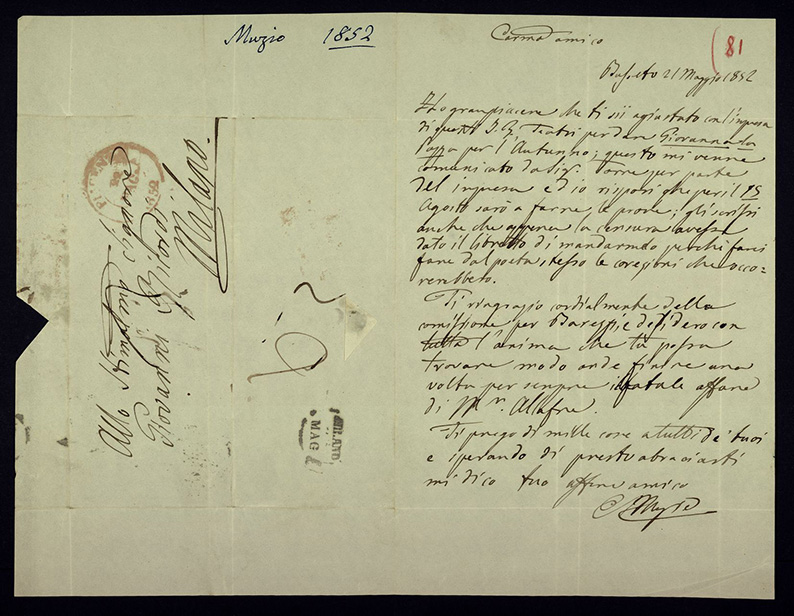 Muzio 1852
81
Carmo amico
Busseto 21 Maggio 1852
Ho gran piacere che ti sii agiustato con l'impresa
di questi I. R. Teatri per dare Giovanna la
Pazza per l'Autunno; questo mi venne
comunicato da Sigr. Torre per parte
del impresa ed io risposi che per il 15
Agosto sarò a farne le prove; gli scrissi
anche che appena la censura avesse
dato il libretto di mandarmelo perchè facci
fare dal poeta stesso le coregioni che occo-
rerebbero.
Ti ringrazio cordialmente della
comissione per Barezzi e desidero con
tutta l'anima che tu possa
trovare modo onde finire una
volta per sempre il fatale affare
di Mr.
Ti prego di mille cose a tutti de' tuoi
e sperando di presto abraciarti
mi dico tuo affmo amico
E Muzio
Allo Stimatissimo Signore
Giovanni Ricordi
Milano.
MAG